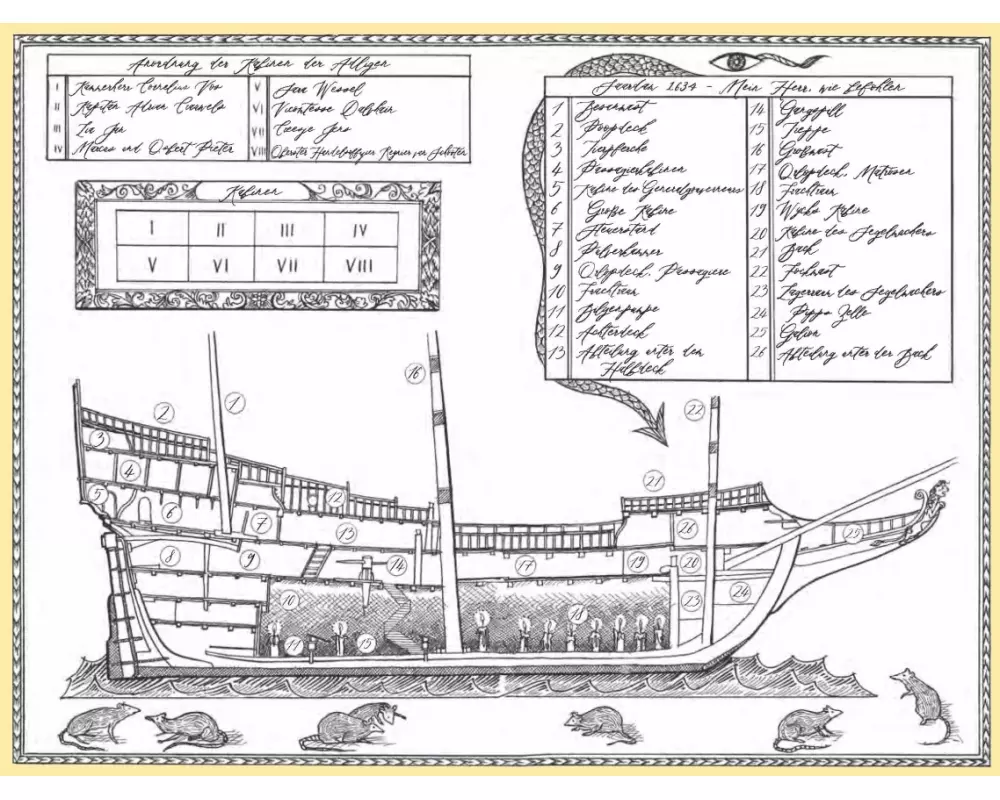 Anordnung der Kabinen der Adligen
I Kammerherr Cornelius Vos
II Kapitän Adrian Crauwels
III Lia Jan
IV Marcus und Osbert Pieter
V Sara Wessel
VI Vicomtesse Dalvhain
VII Creesje Jens
VIII Oberster Handelsoffizier Reynier van Schooten
Kabinen
I II III IV
V VI VII VIII
Saardam 1634 - Mein Herr, wie befohlen
1 Besanmast
2 Poopdeck
3 Tierpferche
4 Passagierkabinen
5 Kabine des Generalgouverneurs
6 Große Kabine
7 Steuerstand
8 Pulverkammer
9 Orlopdeck, Passagiere
10 Frachtraum
11 Bilgenpumpe
12 Achterdeck
13 Abteilung unter dem
Halbdeck
14 Gangspill
15 Treppe
16 Großmast
17 Orlopdeck, Matrosen
18 Frachtraum
19 Wycks Kabine
20 Kabine des Segelmachers
21 Back
22 Fockmast
23 Lagerraum des Segelmachers
24 Pipps Zelle
25 Galion
26 Abteilung unter der Back
1
2
3
4
5
6
7
8
9
10
11
12
13
14
15
16
17
18
19
20
21
22
23
24
25
26